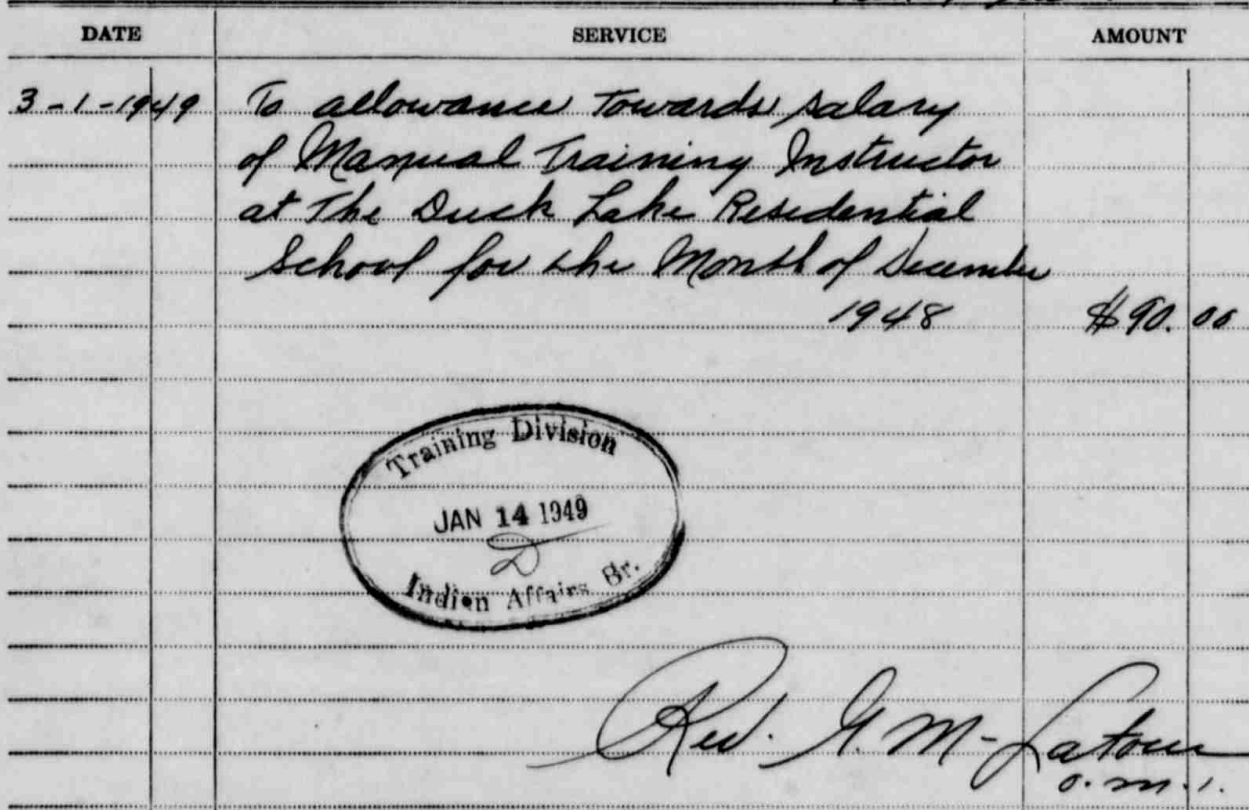 DATE SERVICE AMOUNT
3-1-1949 To allowance Towards salary
of Manual Training Instructor
at The Duck Lake Residential
School for the Month of December
1948 $90.00
Training Division
JAN 14 1949
Indian Affairs Br.
Rev. G. M-Latour
o.m.i.